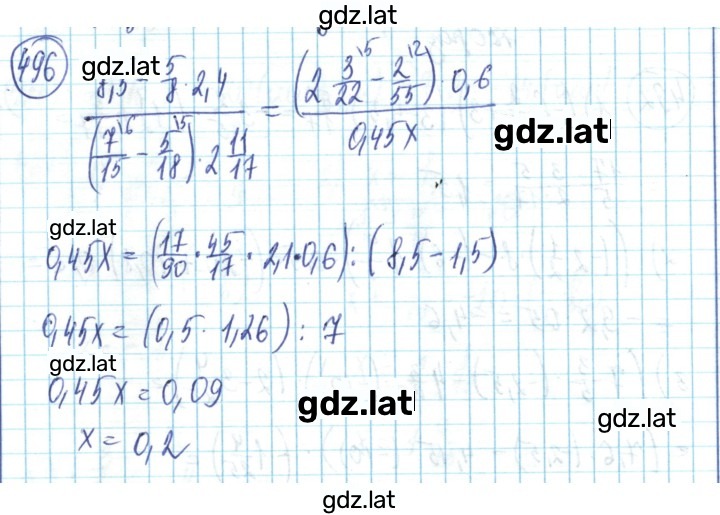 gdz.lat
496
gdz.lat
8,5 - 5/8 · 2,4 / (7/15 \6 - 5/18 \5) · 2 11/17 = (2 3/22 \5 - 2/55 \2) 0,6 / 0,45x
gdz.lat
gdz.lat
0,45x = (17/90 · 45/17 · 2,1 · 0,6) : (8,5 - 1,5)
0,45x = (0,5 · 1,26) : 7
gdz.lat
0,45x = 0,09
gdz.lat
gdz.lat
x = 0,2
gdz.lat